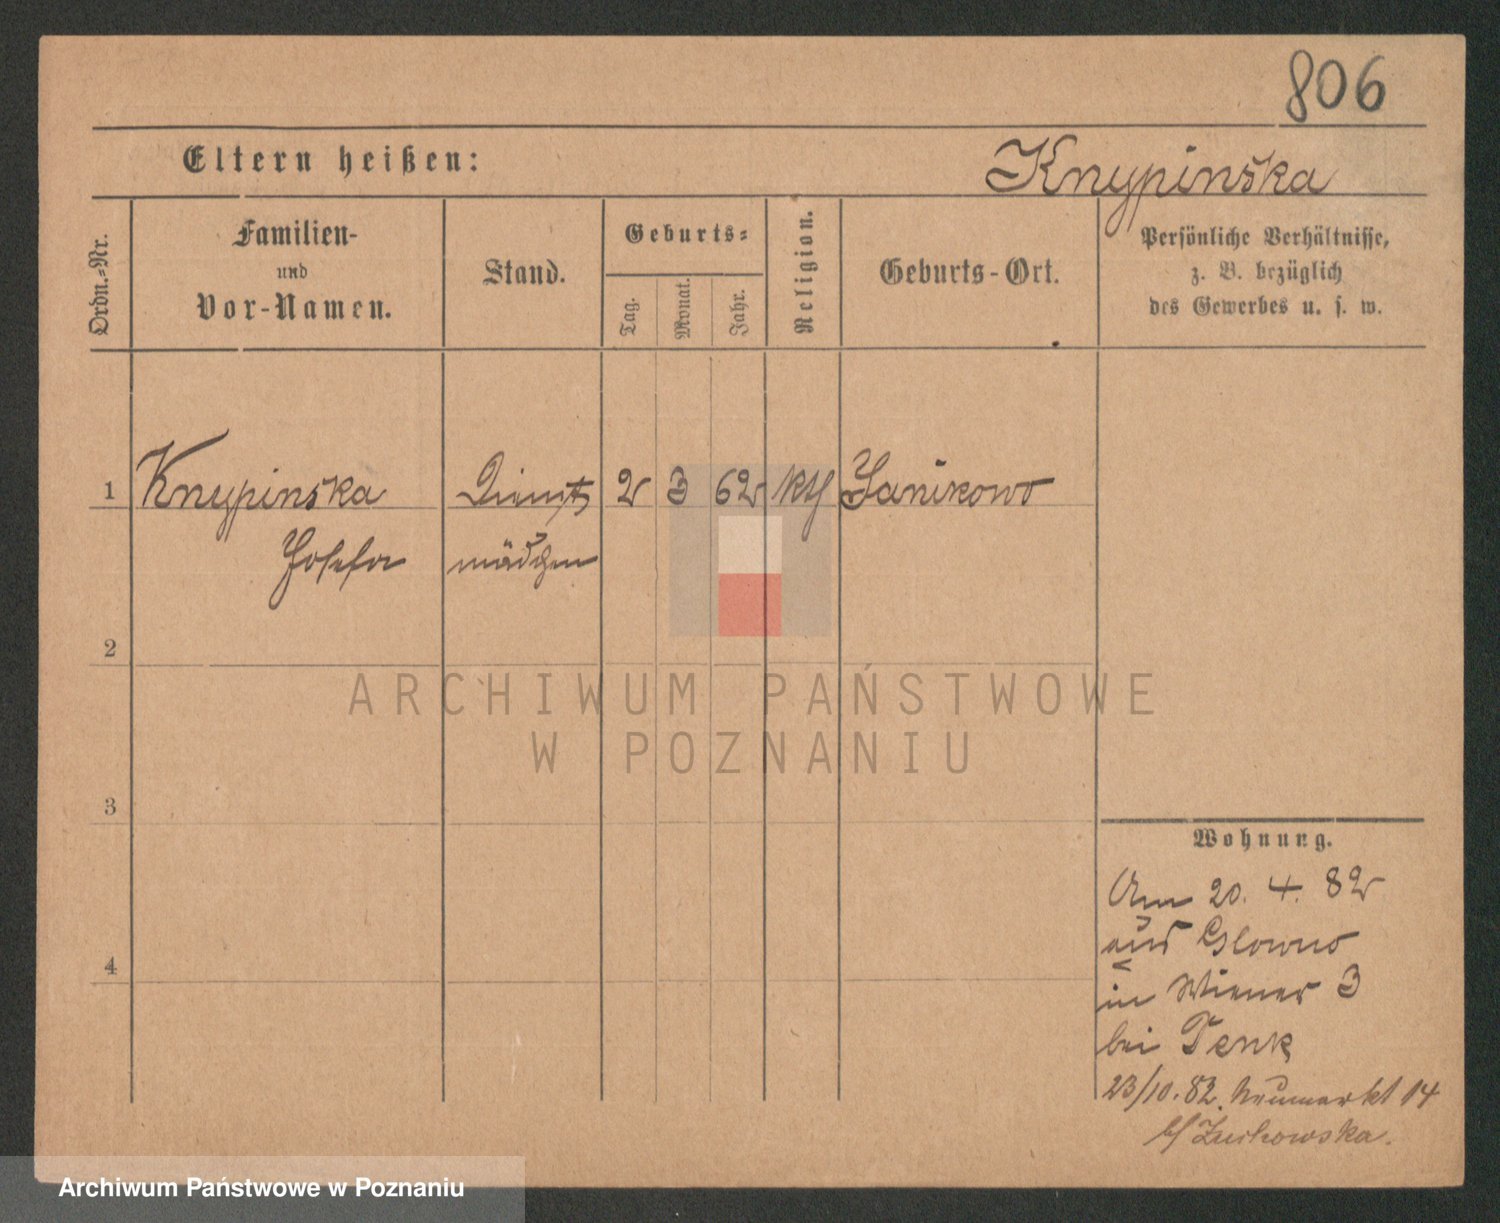 806
Eltern heißen:
Knypinska
Ordn.-Nr.
Familien-
und
Vor-Namen.
Stand.
Geburts-
Tag.
Monat.
Jahr.
Religion.
Geburts-Ort.
Persönliche Verhältnisse,
z. B. bezüglich
des Gewerbes u. s. w.
1 Knypinska Dienst 2 3 62 kth Janikowo
Josefa mädchen
2
ARCHIWUM PAŃSTWOWE
W POZNANIU
3
Wohnung.
Am 20. 4. 82
aus Glowno
4
in Wiener 3
bei Tenk
23/10. 82. Neumarkt 14
b/ Zuchowska.
Archiwum Państwowe w Poznaniu